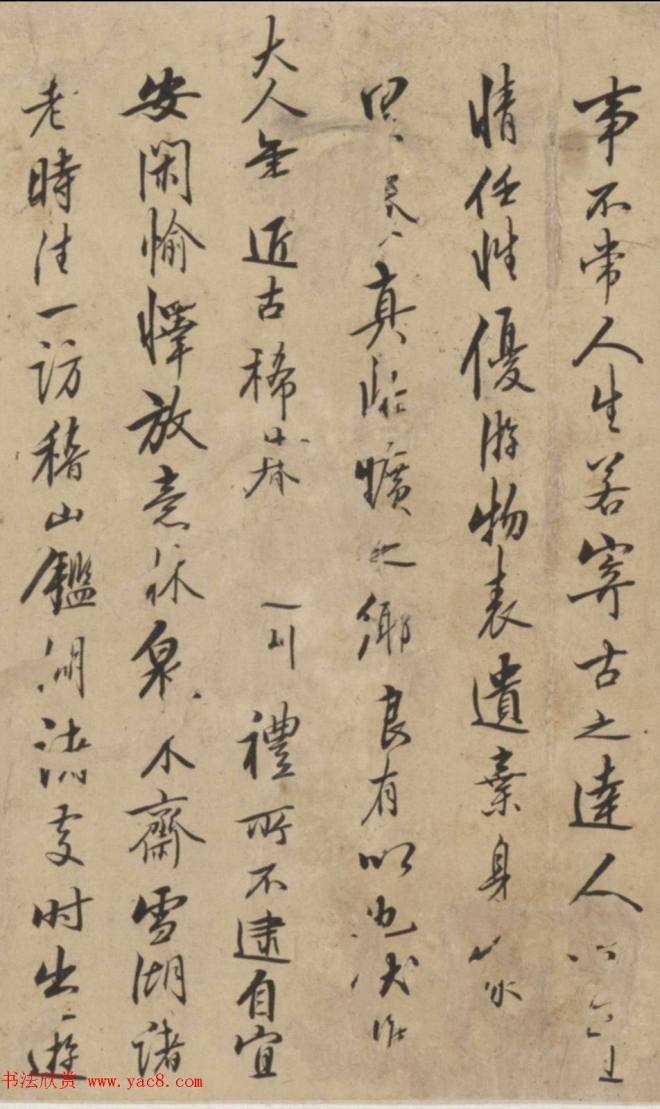 事不常人生若寄古之達人
情任性優游物表遺棄身家
真恬曠之鄉良有以也伏惟
大人年近古稀朞 制禮所不逮自宜
安閑愉懌放意林泉木齋雪湖諸
老時往一訪稽山鑑湖諸處时出一遊
书法欣赏 www.yac8.com